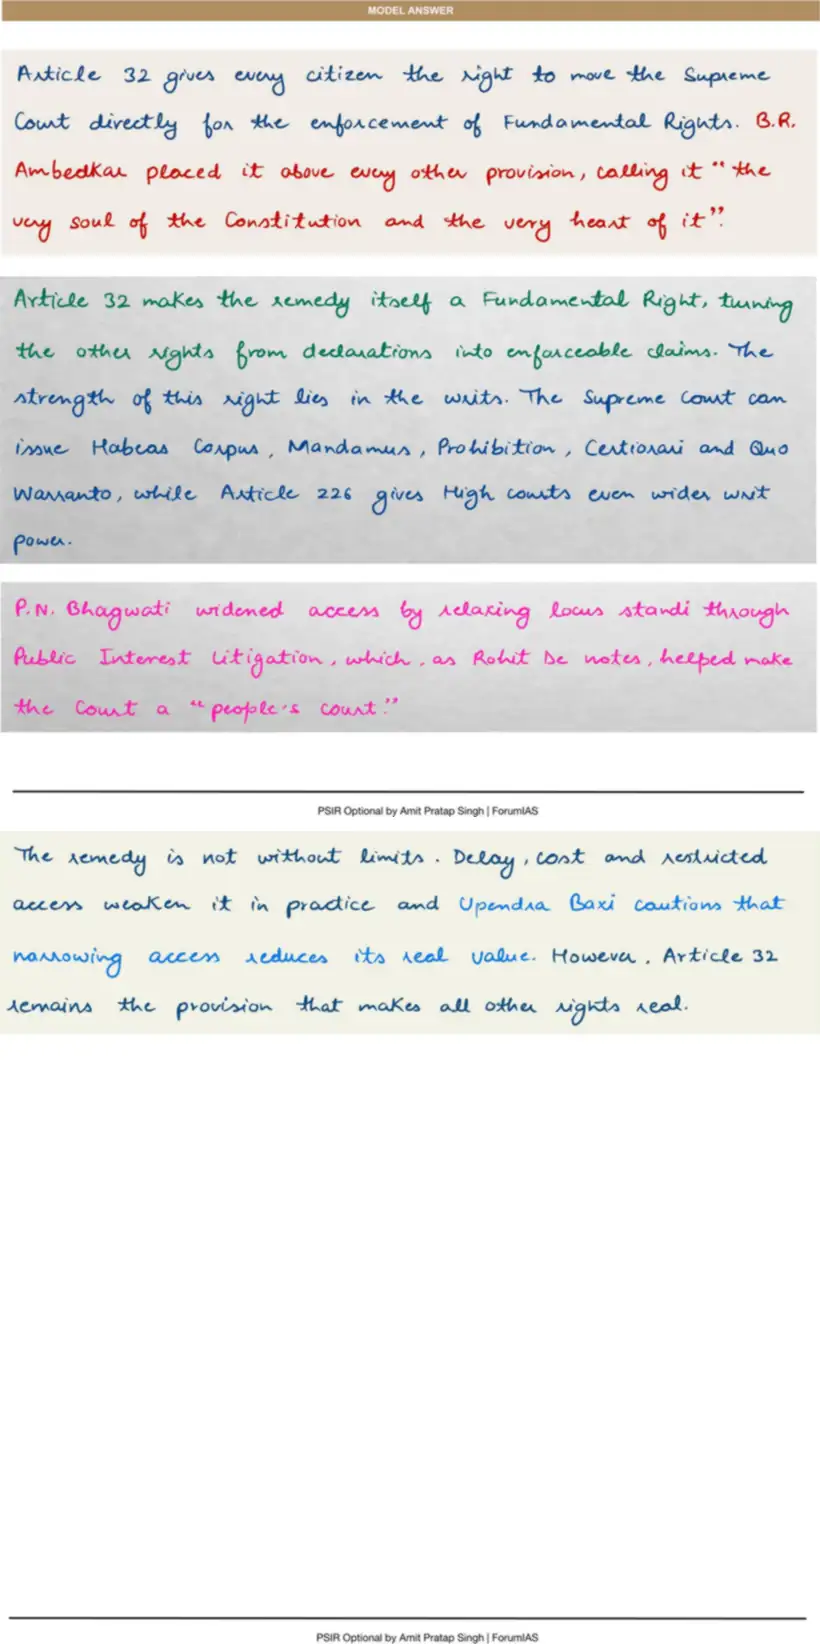 MODEL ANSWER
Article 32 gives every citizen the right to move the Supreme
Court directly for the enforcement of Fundamental Rights. B.R.
Ambedkar placed it above every other provision, calling it "the
very soul of the Constitution and the very heart of it".
Article 32 makes the remedy itself a Fundamental Right, turning
the other rights from declarations into enforceable claims. The
strength of this right lies in the writs. The Supreme Court can
issue Habeas Corpus, Mandamus, Prohibition, Certiorari and Quo
Warranto, while Article 226 gives High courts even wider writ
power.
P.N. Bhagwati widened access by relaxing locus standi through
Public Interest Litigation, which, as Rohit De notes, helped make
the Court a "people's court."
PSIR Optional by Amit Pratap Singh | ForumIAS
The remedy is not without limits. Delay, cost and restricted
access weaken it in practice and Upendra Baxi cautions that
narrowing access reduces its real value. However, Article 32
remains the provision that makes all other rights real.
PSIR Optional by Amit Pratap Singh | ForumIAS